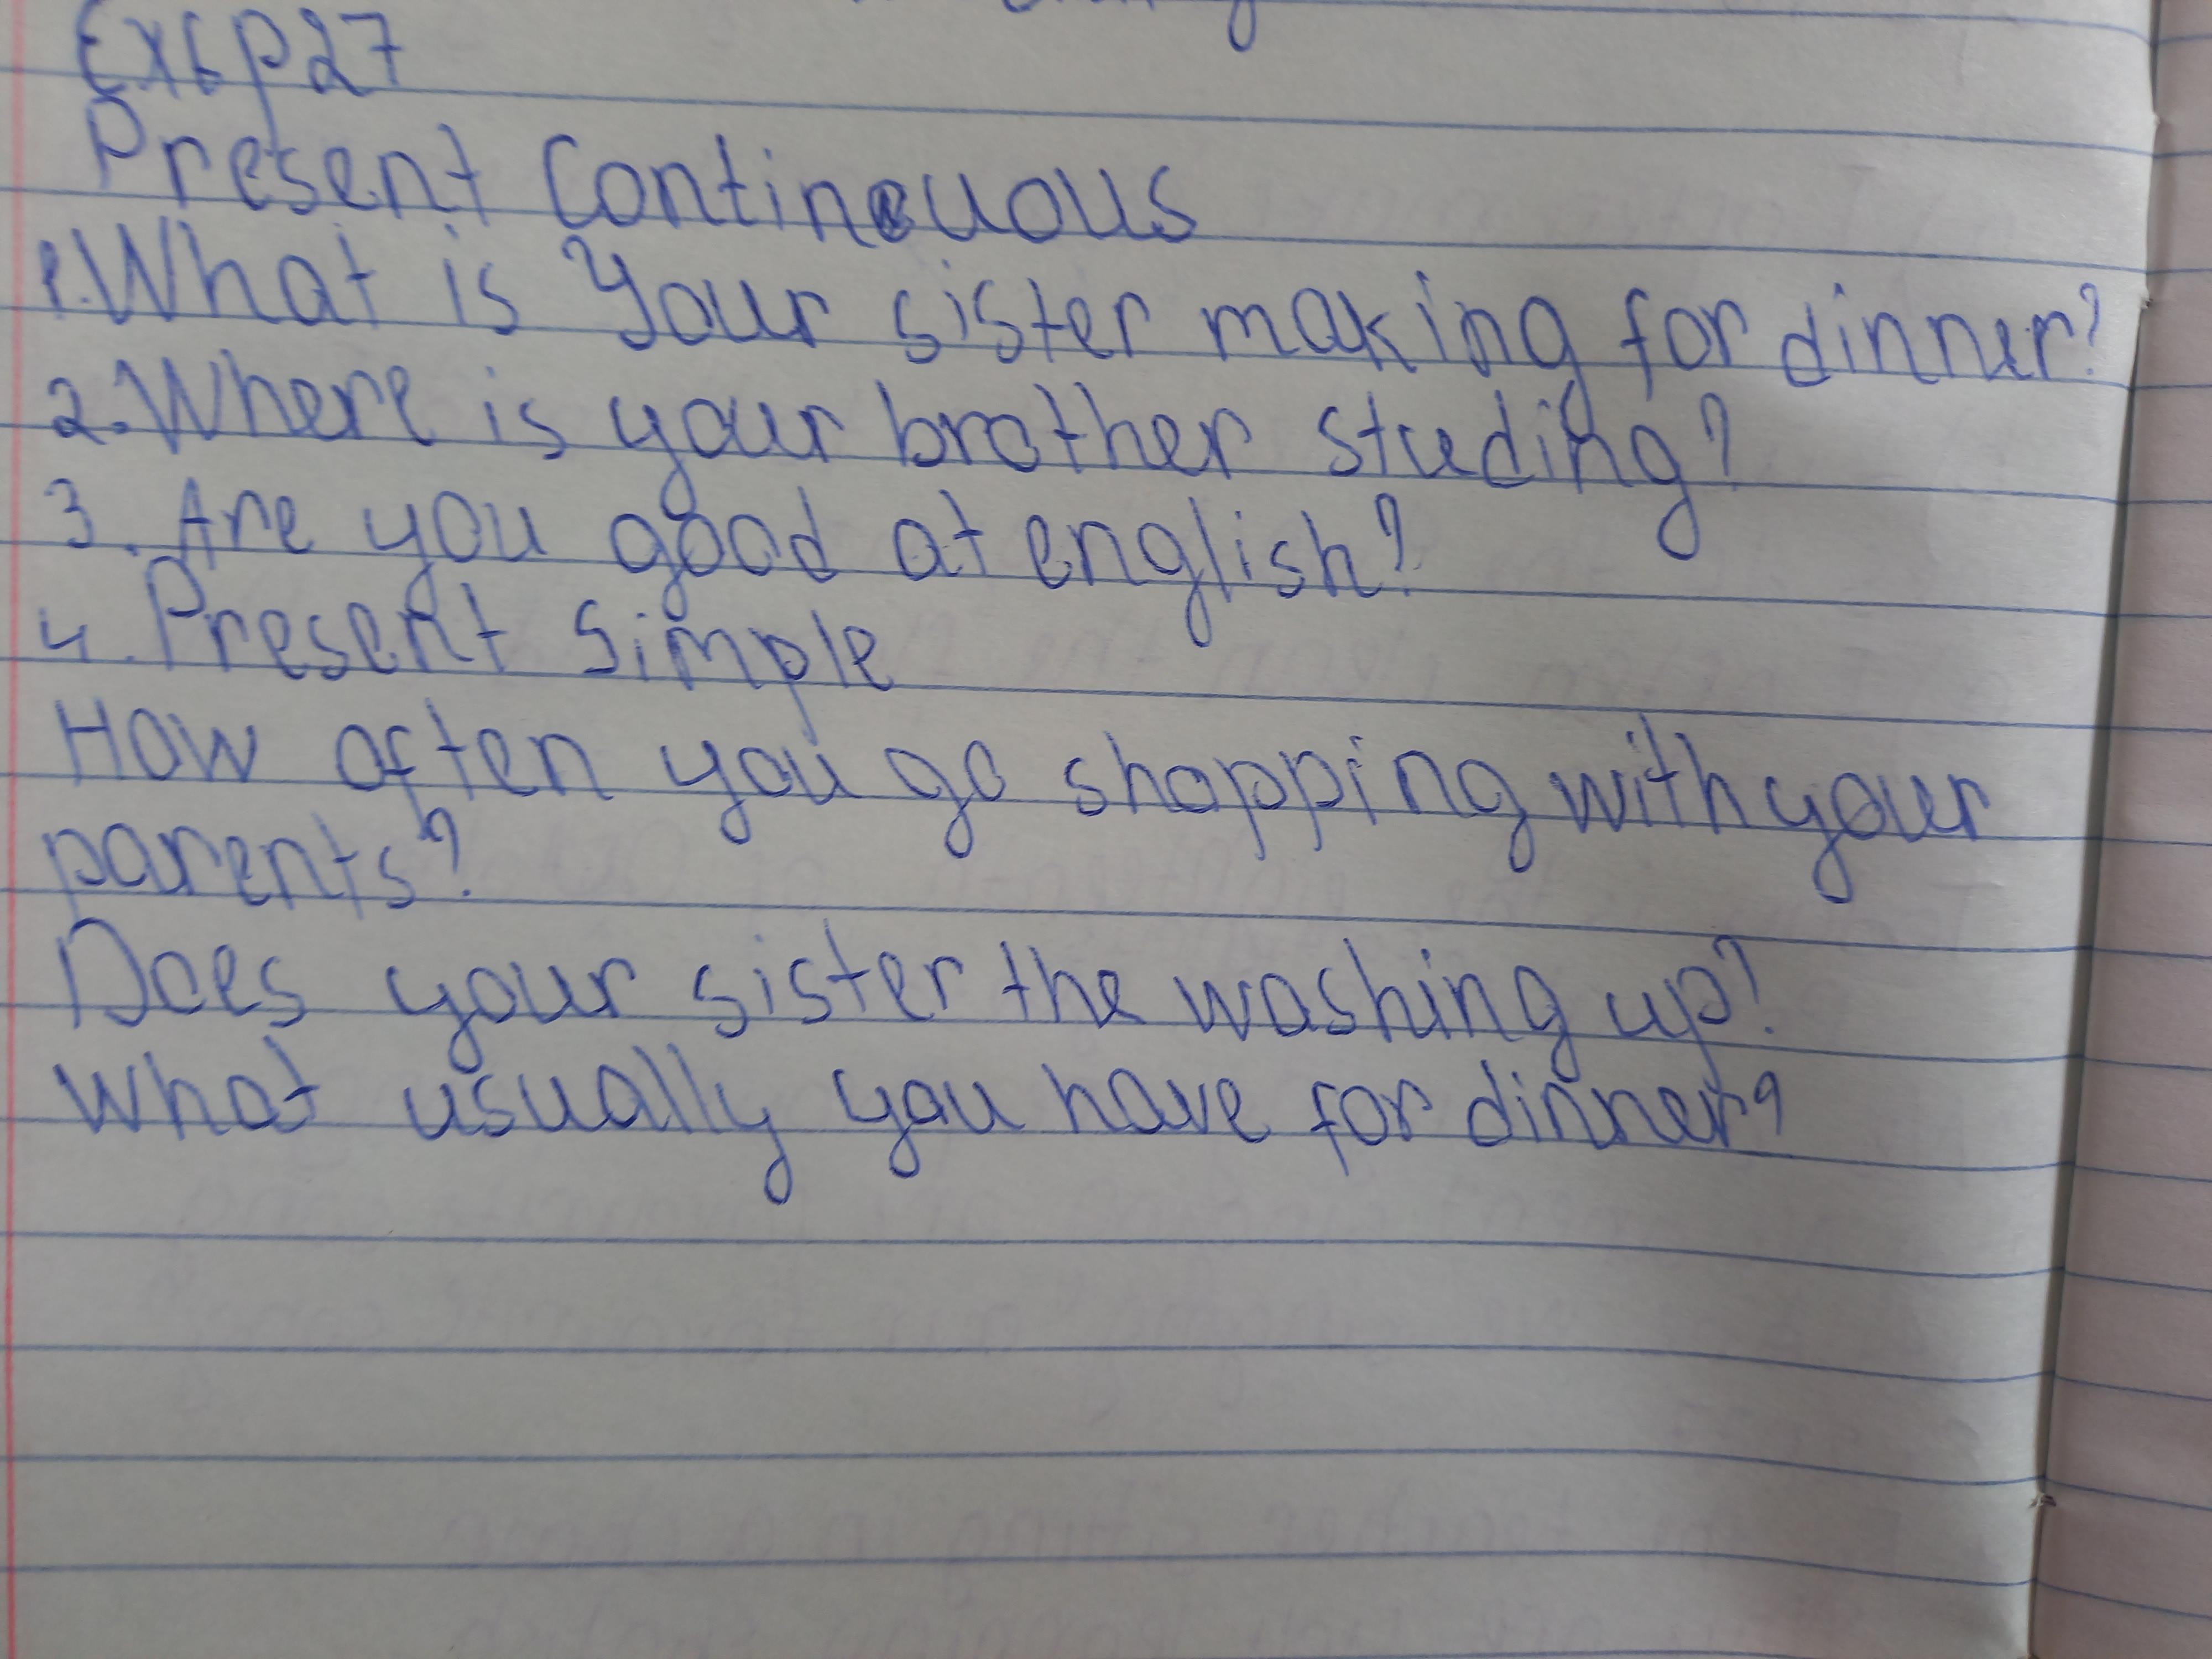 Ex6p27
Present Continuous
1.What is your sister making for dinner?
2.Where is your brother studing?
3. Are you good at english?
4. Present Simple
How often you go shopping with your
parents?
Does your sister the washing up?
What usually you have for dinner?